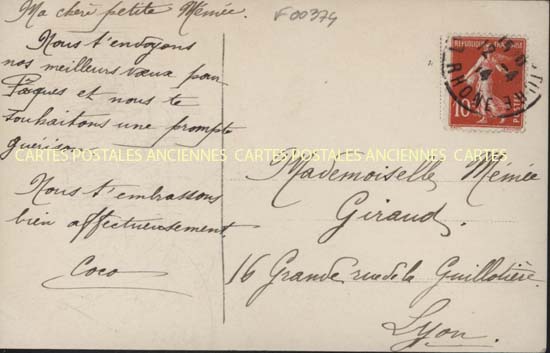 Ma chère petite Mémée.
F00374
Nous t'envoyons
nos meilleurs vœux pour
Pâques et nous te
souhaitons une prompte
guérison.
Nous t'embrassons
bien affectueusement.
Coco
REPUBLIQUE FRANÇAISE
10
RHONE
CARTES POSTALES ANCIENNES CARTES POSTALES ANCIENNES CARTES POSTALES ANCIENNES
Mademoiselle Mémée
Giraud.
16 Grande rue de la Guillotière.
Lyon.